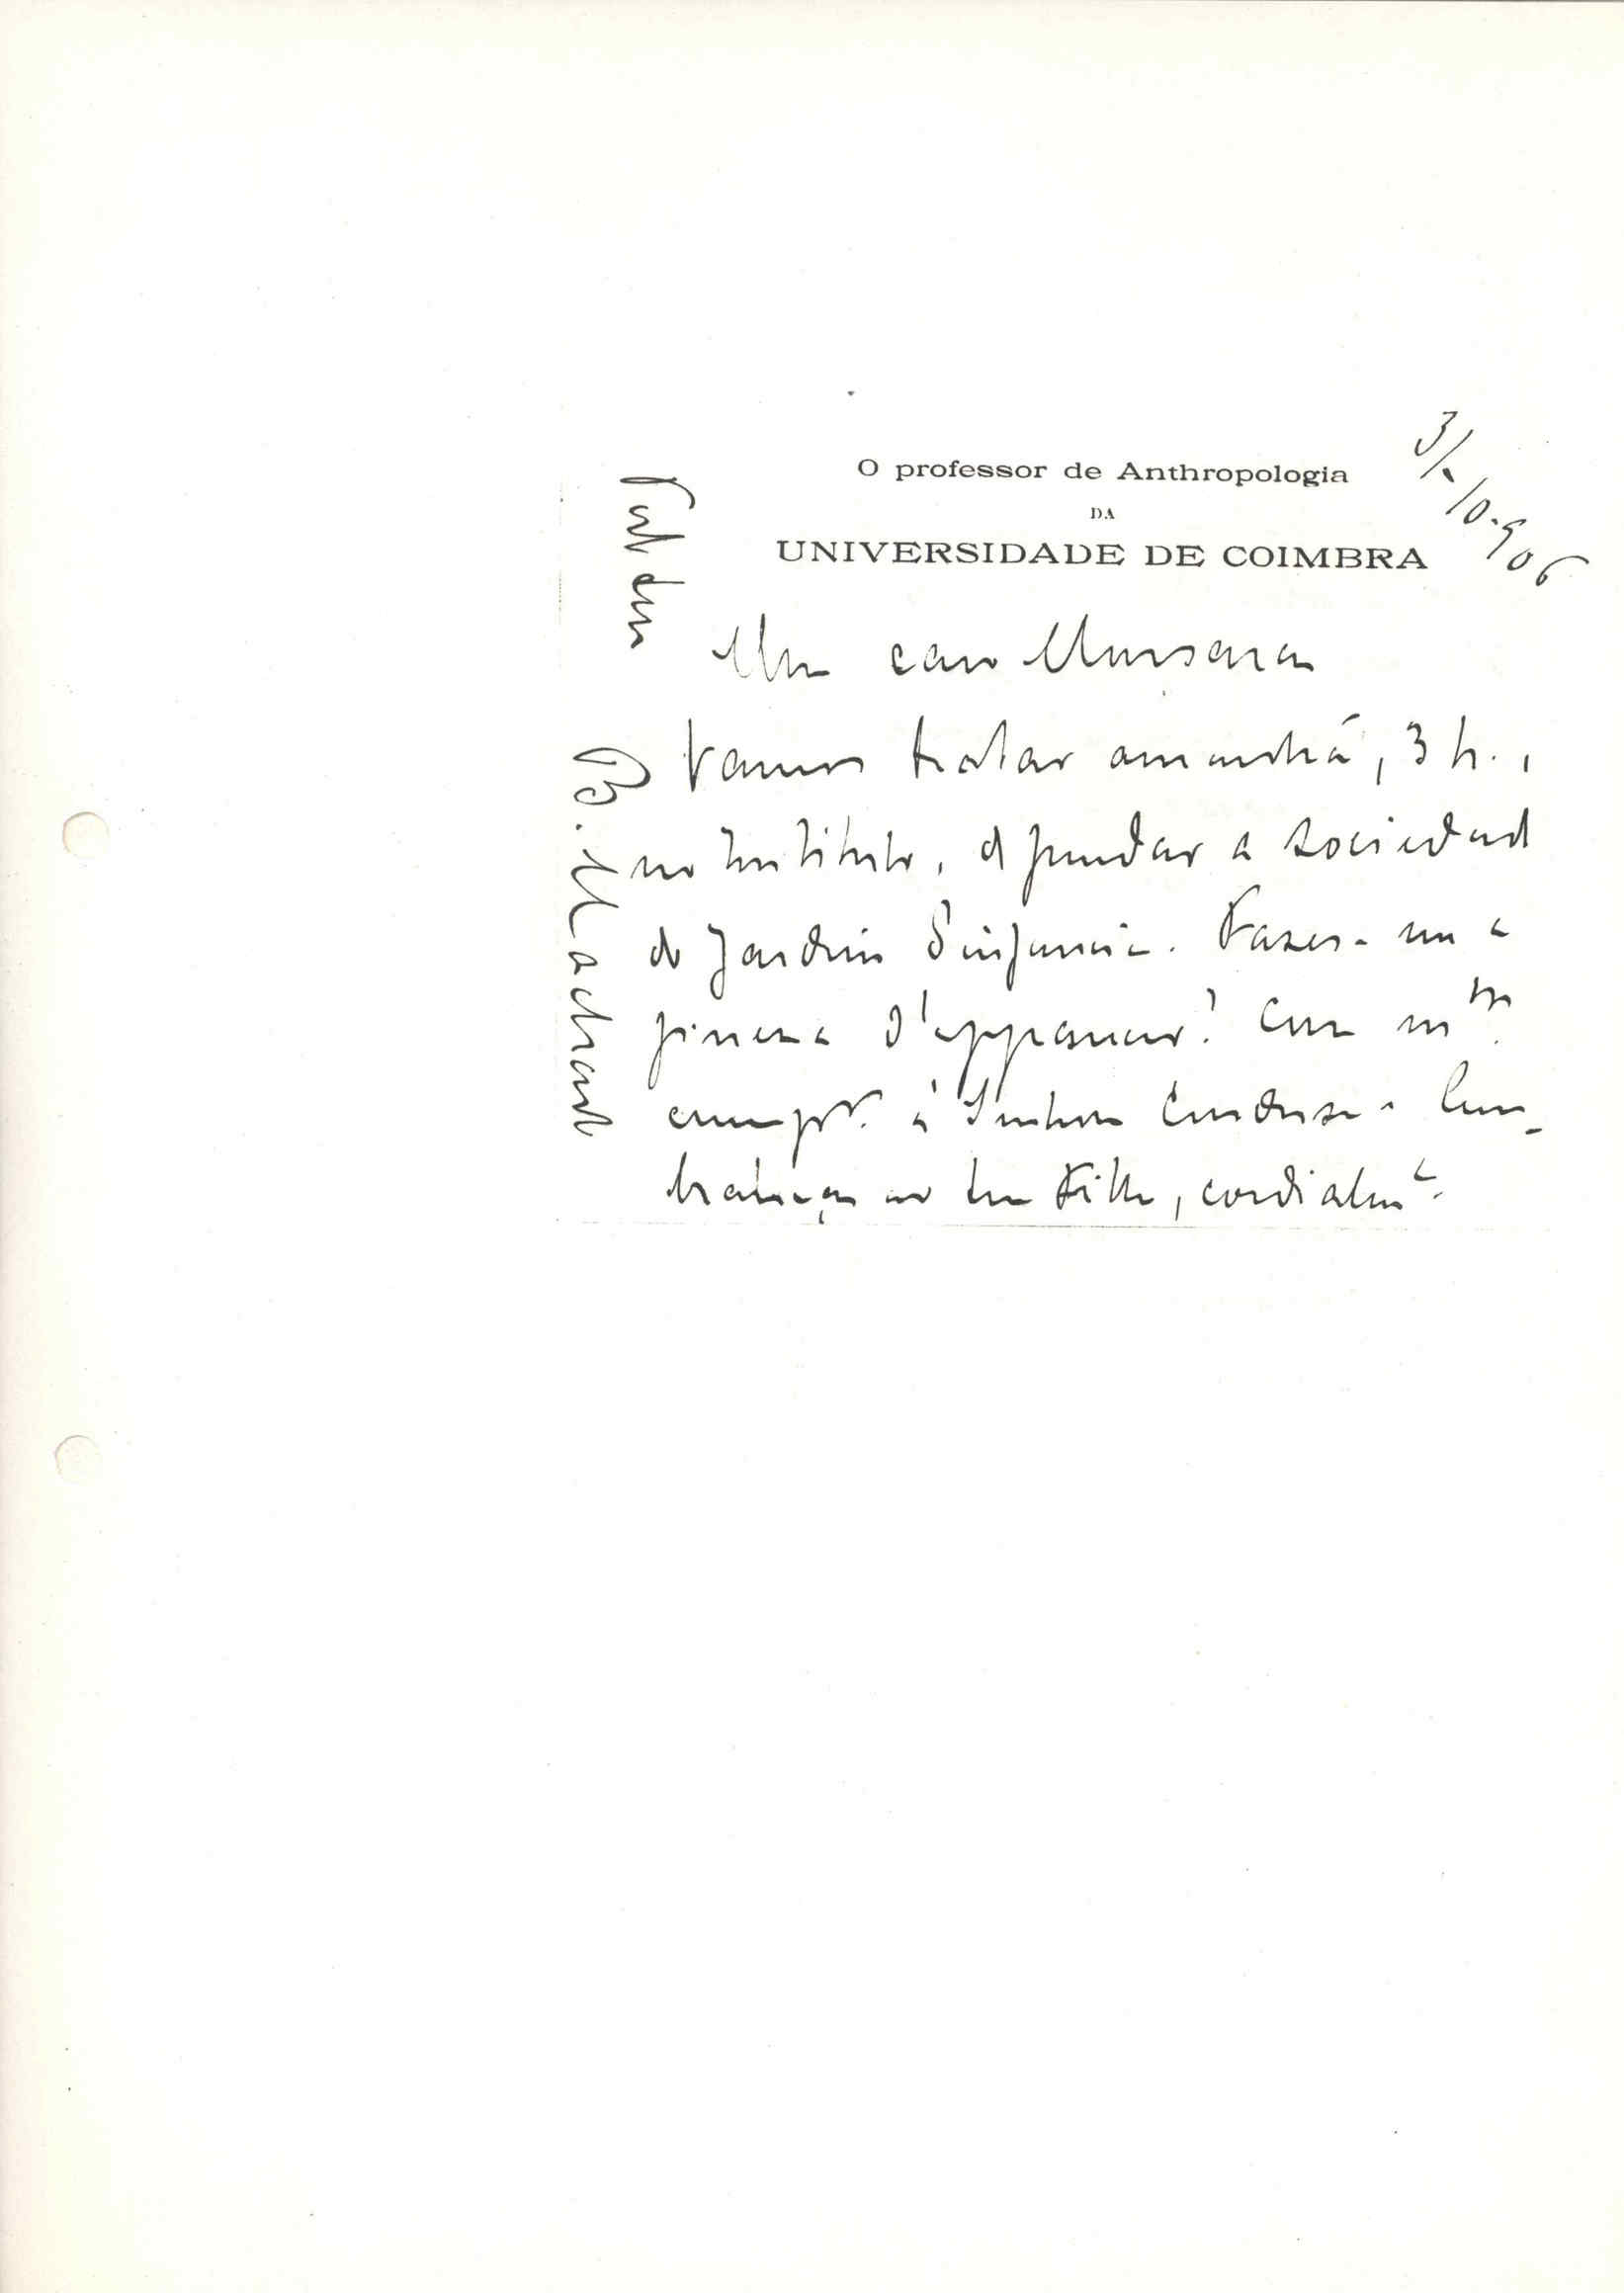 O professor de Anthropologia
DA
UNIVERSIDADE DE COIMBRA
3/-10-906
Meu caro Monsaraz
Vamos tratar amanhã, 3 h.,
no Instituto, de fundar a sociedade
do Jardim d'infancia. Fazes-me a
fineza d'apparecer? Com m.tos
cumptos. á Senhora Condessa e lem-
branças ao teu Filho, cordialmte.
B. Machado